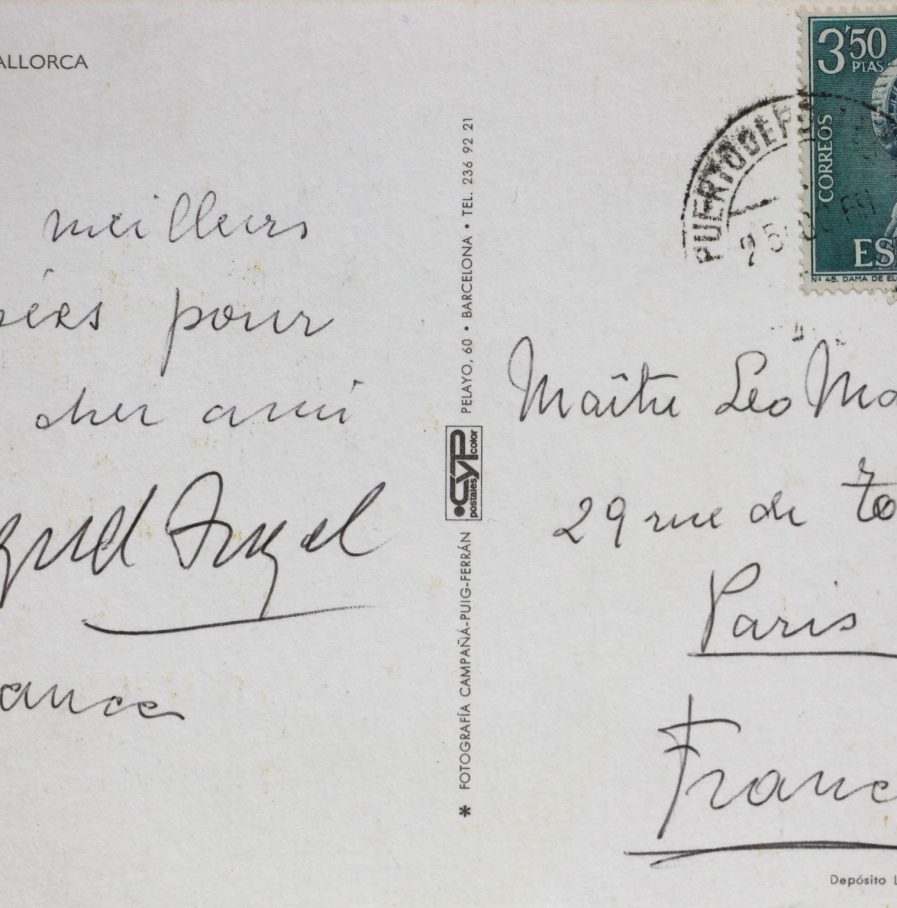 ALLORCA
meilleurs
pour
cher ami
Angel
FOTOGRAFÍA CAMPAÑA-PUIG-FERRÁN
CYP
postales color
PELAYO, 60 • BARCELONA • TEL. 236 92 21
3'50
PTAS
CORREOS
ES
Nº 45, DAMA DE EL
PUERTO DE
Maître Leo Ma
29 rue de To
Paris
Franc
Depósito L